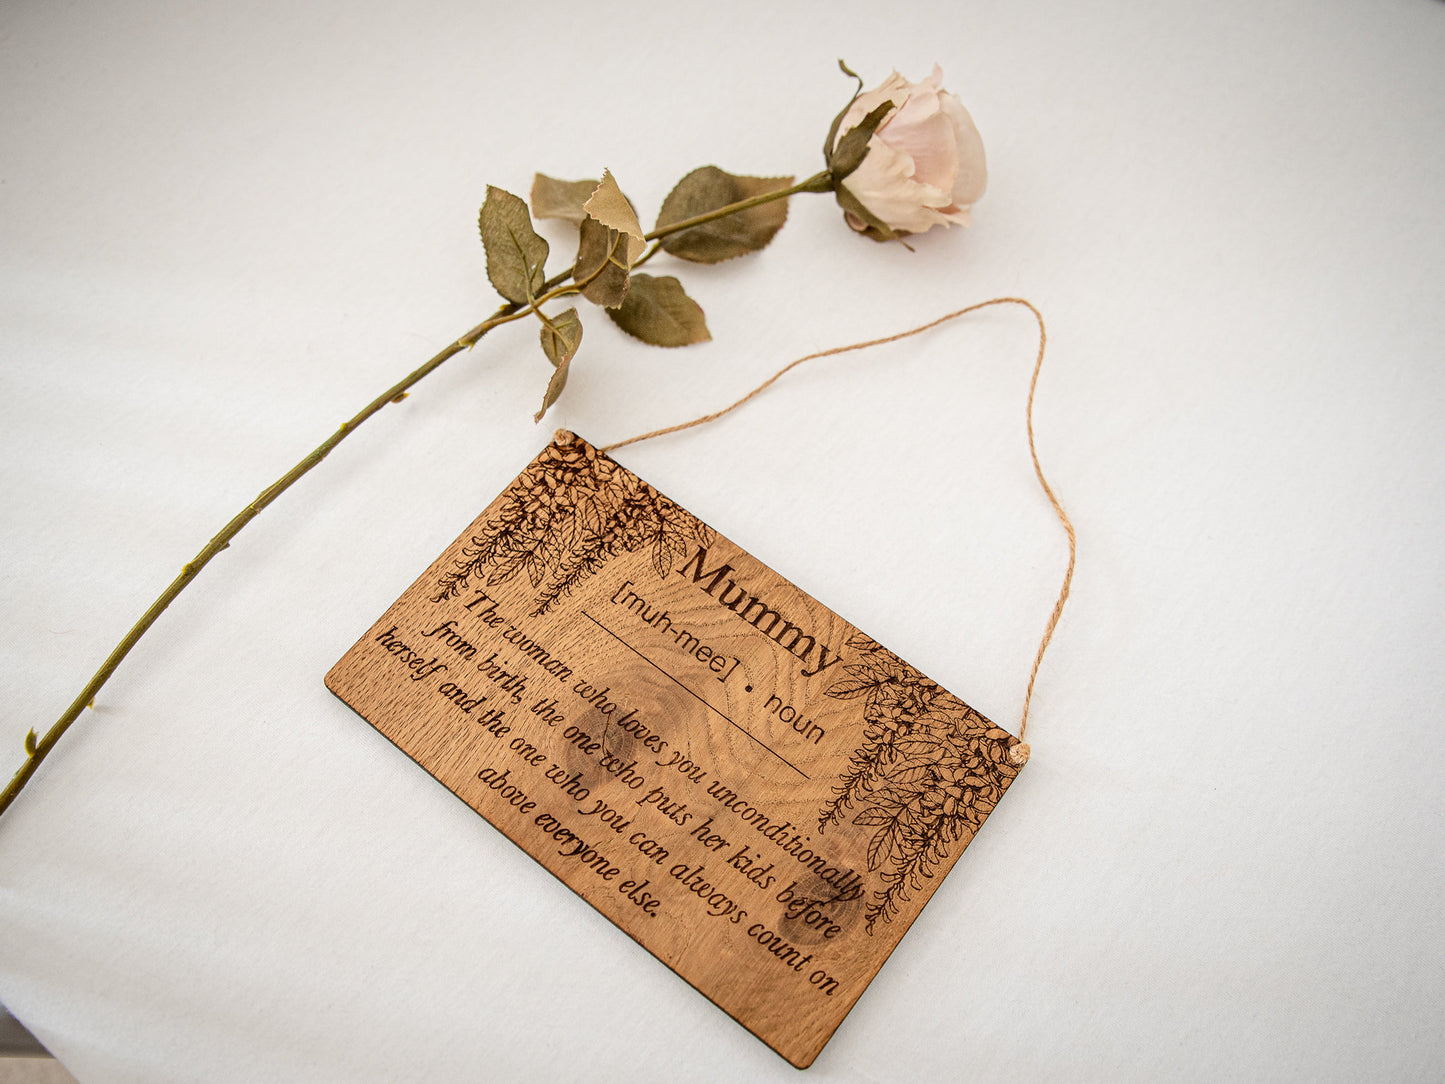 Mummy
[muh-mee] • noun
The woman who loves you unconditionally
from birth, the one who puts her kids before
herself and the one who you can always count on
above everyone else.